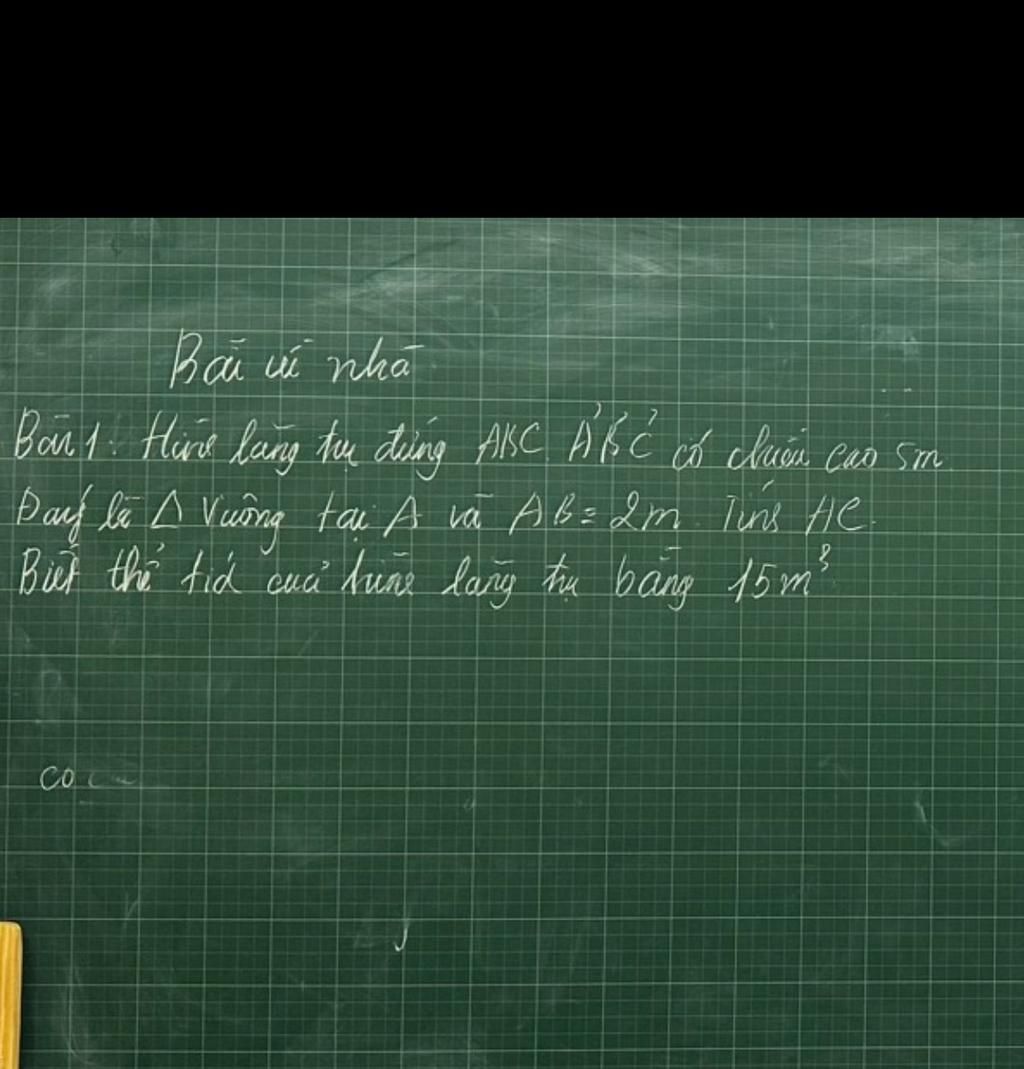 Bài về nhà
Bài 1: Hình lăng trụ đứng ABC. A'B'C' có chiều cao 5m
Đáy là Δ Vuông tại A và AB = 2m. Tính AC.
Biết thể tích của hình lăng trụ bằng 15m³
co